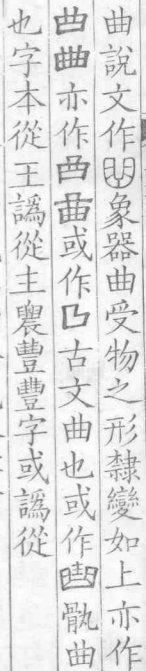 曲說文作𠚖象器曲受物之形隸變如上亦作
𠚖曲亦作凸𤰴或作㔾古文曲也或作骫曲
也字本從王譌從主農豐豊字或譌從